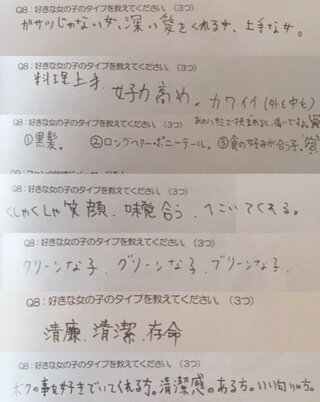 Q8：好きな女の子のタイプを教えてください。（3つ）
ガサツじゃない女、深い愛をくれる女、上手な女。
Q8：好きな女の子のタイプを教えてください。（3つ）
料理上手、女子力高め。カワイイ（外も中も）
Q8：好きな女の子のタイプを教えてください。（3つ）
①黒髪。 ②ロングヘアーポニーテール。③食の好みが合う子。
Q8：好きな女の子のタイプを教えてください。（3つ）
くしゃくしゃ笑顔、味覚合う、
Q8：好きな女の子のタイプを教えてください。（3つ）
クリーンな子、グリーンな子、ブリーンな子、
Q8：好きな女の子のタイプを教えてください。（3つ）
清廉、清潔、存命
Q8：好きな女の子のタイプを教えてください。（3つ）
ボクの事を好きでいてくれる方。清潔感のある方。いい匂いの方。